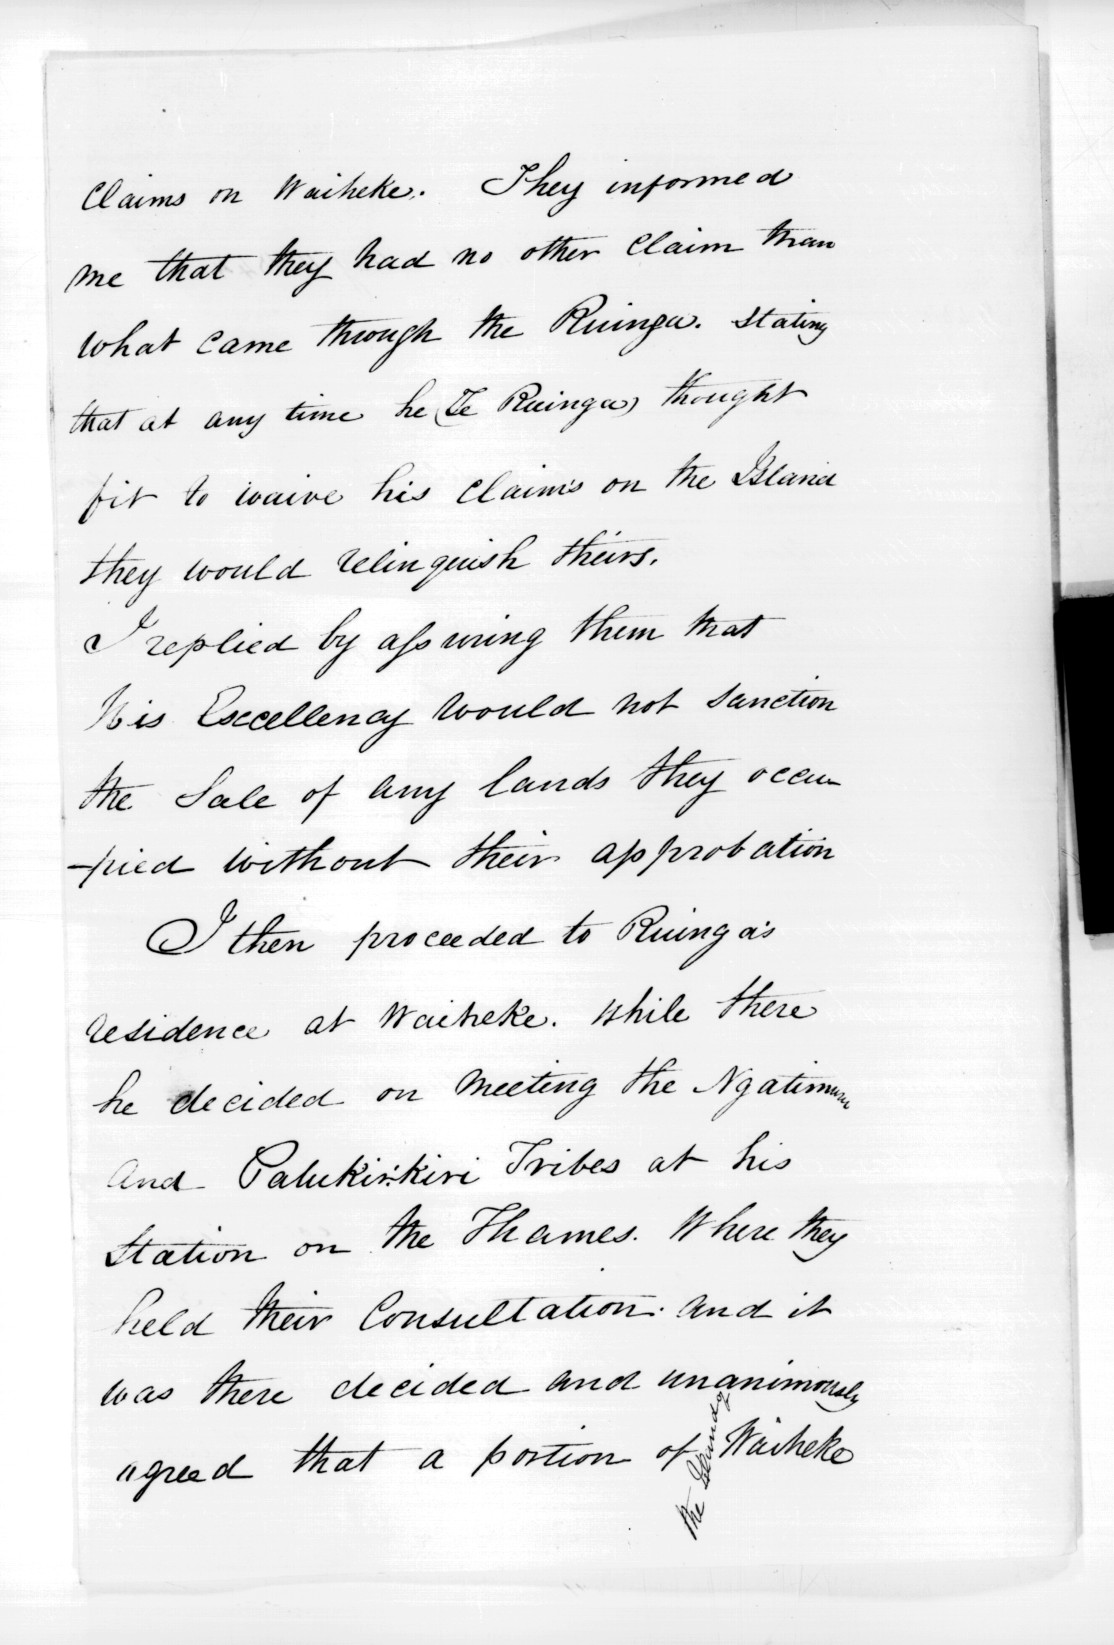 Claims on Waiheke. They informed
me that they had no other Claim than
what came through the Ruinga. stating
that at any time he (Te Ruinga) thought
fit to waive his Claims on the Island
they would relinquish theirs.
I replied by assuring them that
His Excellency would not sanction
the Sale of any lands they occu
-pied without their approbation
I then proceeded to Ruinga's
residence at Waiheke. While there
he decided on Meeting the Ngatimuru
and Patukirikiri Tribes at his
Station on the Thames. Where they
held their Consultation. and it
was there decided and unanimously
agreed that a portion of the Island of Waiheke